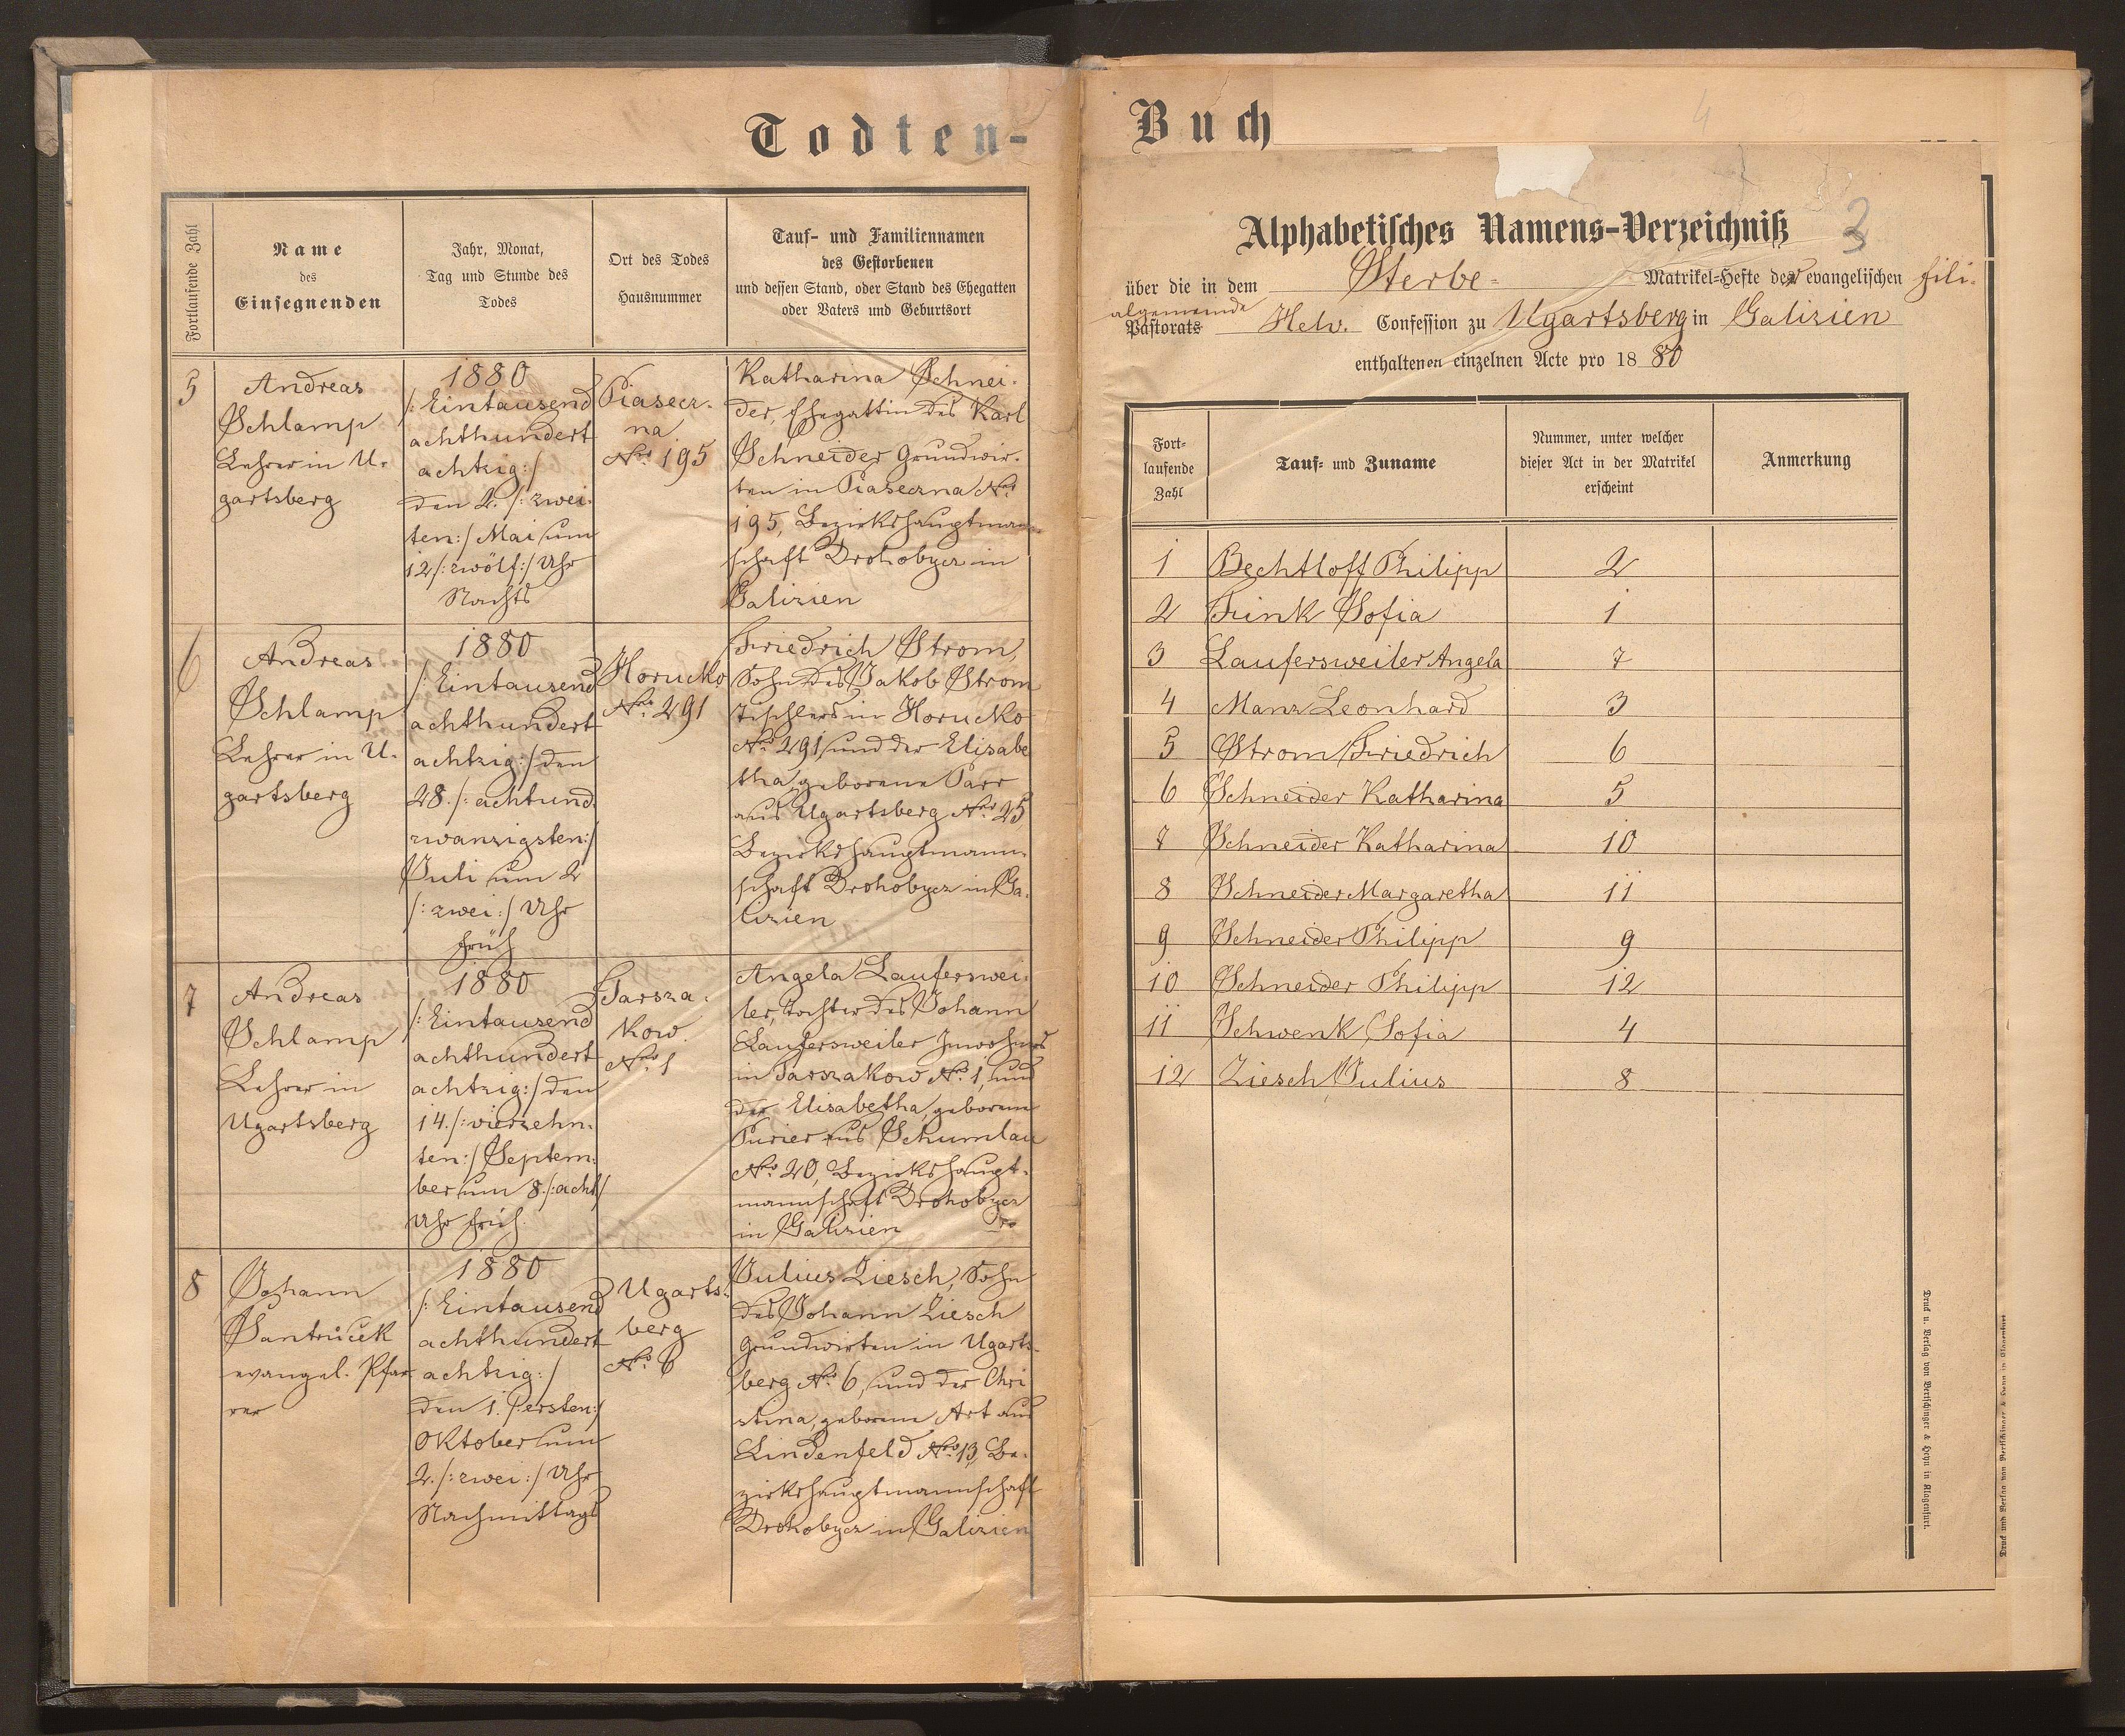 Todten-
Fortlaufende Zahl
Name
des
Einsegnenden
Jahr, Monat,
Tag und Stunde des
Todes
Ort des Todes
Hausnummer
Tauf- und Familiennamen
des Gestorbenen
und dessen Stand, oder Stand des Ehegatten
oder Vaters und Geburtsort
5
Andreas
Schlamp
Lehrer in U-
gartsberg
1880
/: Eintausend
achthundert
achtzig :/
den 2. /: zwei-
ten :/ Mai um
12 /: zwölf :/ Uhr
Nachts
Piasecz-
na
Nro 195
Katharina Schnei-
der, Ehegattin des Karl
Schneider Grundwir-
ten in Piaseczna Nro
195, Bezirkshauptmann-
schaft Drohobycz in
Galizien
6
Andreas
Schlamp
Lehrer in U-
gartsberg
1880
/: Eintausend
achthundert
achtzig :/ den
28. /: achtund-
zwanzigsten :/
Juli um 2
/: zwei :/ Uhr
früh
Horucko
Nro 291
Friedrich Strom,
Sohn des Jakob Strom
Tischlers in Horucko
Nro 291, und der Elisabe
tha, geborene Parr
aus Ugartsberg Nro 25
Bezirkshauptmann-
schaft Drohobycz in Ga-
lizien
7
Andreas
Schlamp
Lehrer in
Ugartsberg
1880
/: Eintausend
achthundert
achtzig :/ den
14. /: vierzehn-
ten :/ Septem-
ber um 8. /: acht :/
Uhr früh.
Tarsza-
kow.
Nro 1
Angela Lauferswei-
ler, Tochter des Johann
Laufersweiler Inwohners
in Tarszakow Nro 1, und
der Elisabetha, geborene
Purier aus Schumlau
Nro 20, Bezirkshaupt-
mannschaft Drohobycz
in Galizien
8
Johann
Santruček
evangel. Pfar-
rer
1880
/: Eintausend
achthundert
achtzig :/
den 1. /: ersten :/
Oktober um
2. /: zwei :/ Uhr
Nachmittags
Ugarts-
berg
Nro 6
Julius Ziesch, Sohn
des Johann Ziesch
Grundwirten in Ugarts-
berg Nro 6, und der Chri
stina, geborene Art aus
Lindenfeld Nro 13, Be-
zirkshauptmannschaft
Drohobycz in Galizien
Buch
4
Alphabetisches Namens-Verzeichniß
3
über die in dem Sterbe- Matrikel-Hefte der evangelischen Fili-
algemeinde
Pastorats Helv. Confession zu Ugartsberg in Galizien
enthaltenen einzelnen Acte pro 1880
Fort-
laufende
Zahl
Tauf- und Zuname
Nummer, unter welcher
dieser Act in der Matrikel
erscheint
Anmerkung
1 Bechtloff Philipp 2
2 Fink Sofia 1
3 Laufersweiler Angela 7
4 Manz Leonhard 3
5 Strom Friedrich 6
6 Schneider Katharina 5
7 Schneider Katharina 10
8 Schneider Margaretha 11
9 Schneider Philipp 9
10 Schneider Philipp 12
11 Schwenk Sofia 4
12 Ziesch Julius 8
Druck u. Verlag von Bertschinger & Heyn in Klagenfurt.
Druck und Verlag von Bertschinger & Heyn in Klagenfurt